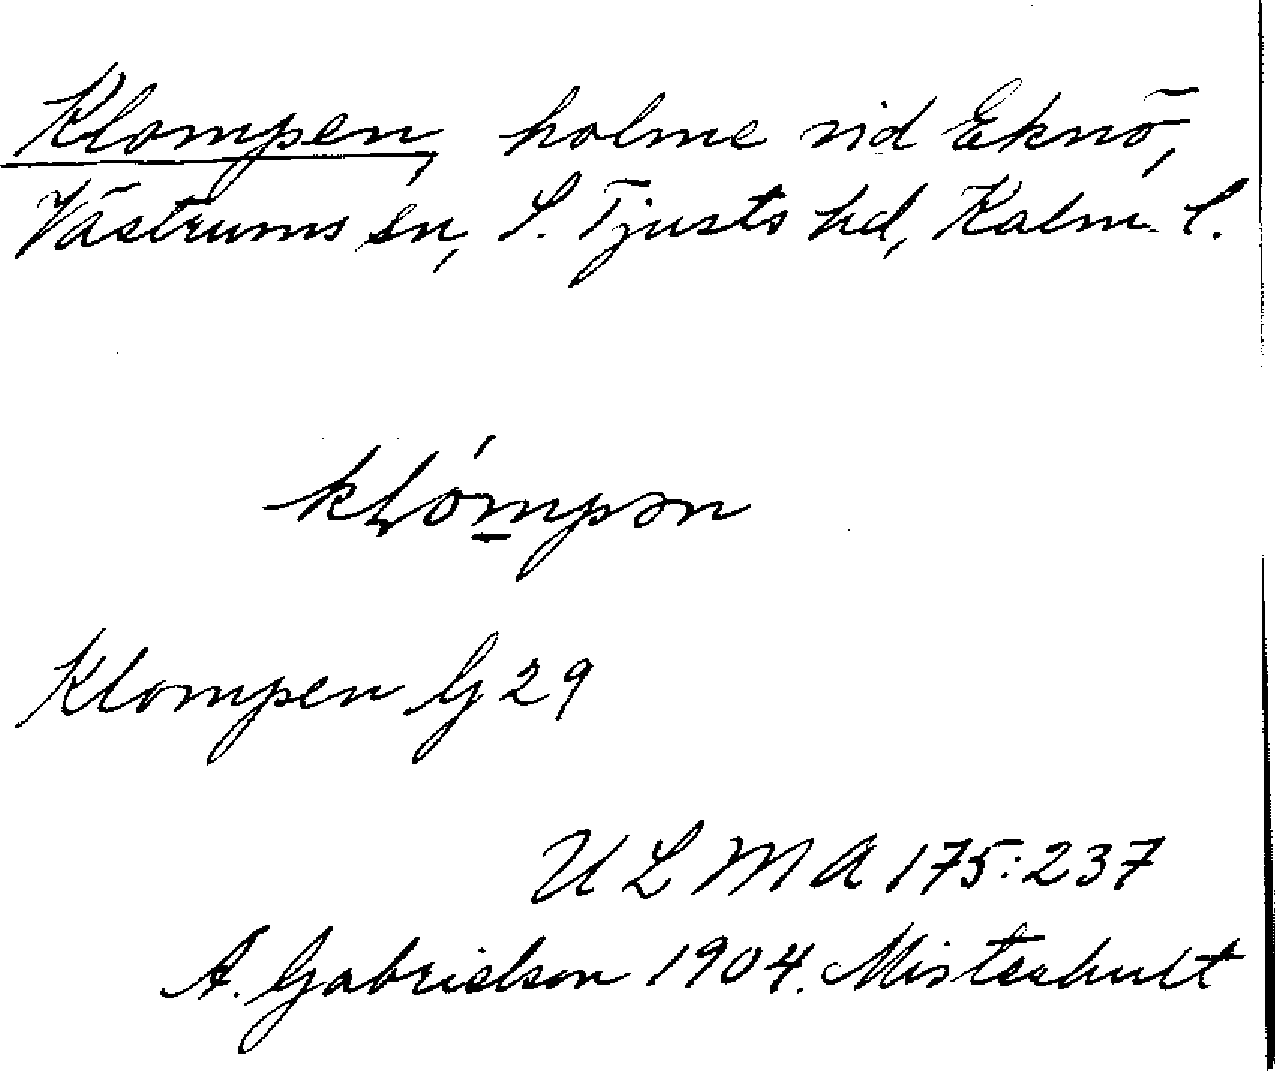 Klompen, holme vid Eknö,
Västrums sn, S. Tjusts hd, Kalm. l.
kłómpən
Klompen G 29
ULMA 175:237
A. Gabrielson 1904. Misterhult